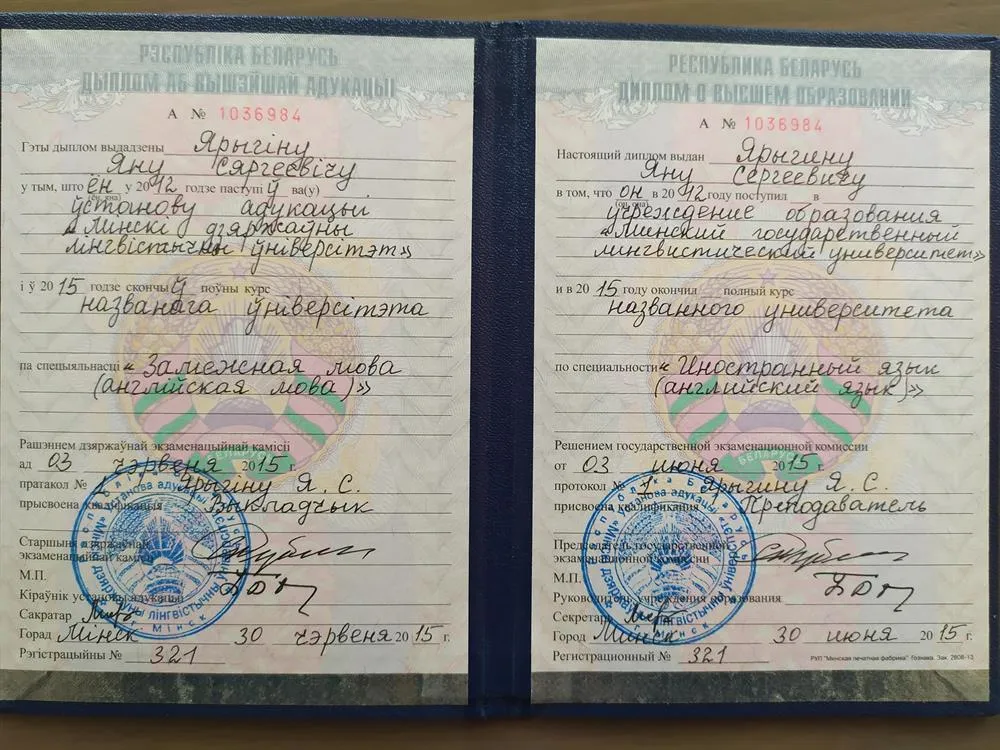 РЭСПУБЛІКА БЕЛАРУСЬ
ДЫПЛОМ АБ ВЫШЭЙШАЙ АДУКАЦЫІ
А № 1036984
Гэты дыплом выдадзены Ярыгіну
Яну Сяргеевічу
у тым, што ён у 2012 годзе паступіў ва(у)
(ён, яна)
ўстанову адукацыі
«Мінскі дзяржаўны
лінгвістычны ўніверсітэт»
і ў 2015 годзе скончыў поўны курс
названага ўніверсітэта
па спецыяльнасці «Замежная мова
(англійская мова)»
Рашэннем дзяржаўнай экзаменацыйнай камісіі
ад 03 чэрвеня 2015 г.
пратакол № 1 Ярыгіну Я. С.
прысвоена кваліфікацыя Выкладчык
Старшыня дзяржаўнай
экзаменацыйнай камісіі
М.П.
Кіраўнік установы адукацыі
Сакратар
Горад Мінск 30 чэрвеня 2015 г.
Рэгістрацыйны № 321
РЕСПУБЛИКА БЕЛАРУСЬ
ДИПЛОМ О ВЫСШЕМ ОБРАЗОВАНИИ
А № 1036984
Настоящий диплом выдан Ярыгину
Яну Сергеевичу
в том, что он в 2012 году поступил в
(он, она)
учреждение образования
«Минский государственный
лингвистический университет»
и в 2015 году окончил полный курс
названного университета
по специальности «Иностранный язык
(английский язык)»
БЕЛАРУСЬ
Решением государственной экзаменационной комиссии
от 03 июня 2015 г.
протокол № 1 Ярыгину Я. С.
присвоена квалификация Преподаватель
Председатель государственной
экзаменационной комиссии
М.П.
Руководитель учреждения образования
Секретарь
Город Минск 30 июня 2015 г.
Регистрационный № 321
РУП "Минская печатная фабрика" Гознака. Зак. 2808-13